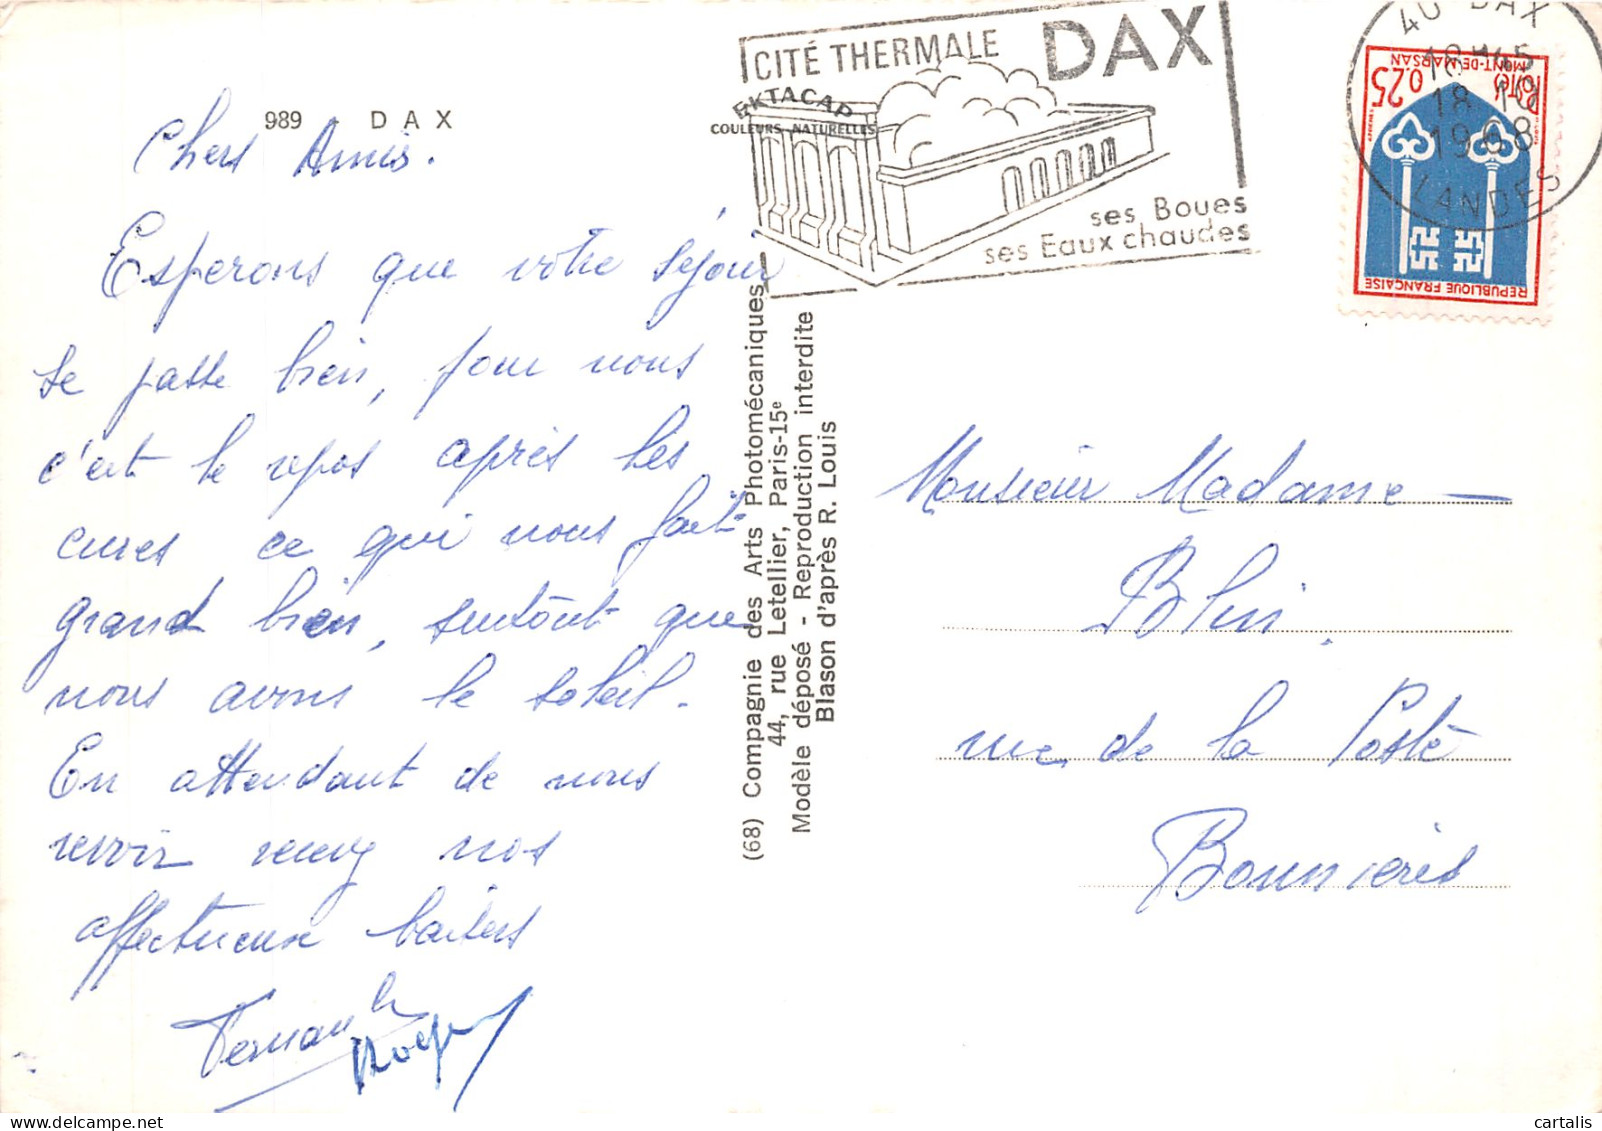 989 - DAX
Chers Amis.
Esperons que votre séjour
se passe bien, pour nous
c'est le repos après les
cures ce qui nous fait
grand bien, surtout que
nous avons le soleil.
En attendant de nous
revoir recevez nos
affectueux baisers
Fernande
Roger
CITÉ THERMALE DAX
EKTACAP
COULEURS NATURELLES
ses Boues
ses Eaux chaudes
40 DAX
18H45
18-10
1968
LANDES
0.25
POSTES
MONT-DE-MARSAN
REPUBLIQUE FRANÇAISE
(68) Compagnie des Arts Photomécaniques
44, rue Letellier, Paris-15e
Modèle déposé - Reproduction interdite
Blason d'après R. Louis
Monsieur Madame
Blin
rue de la Poste
Bonnières
cartalis / delcampe.net